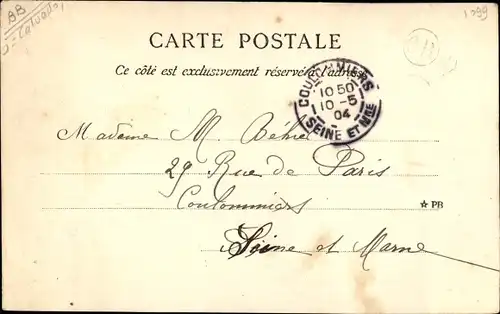 BB
Calvados
1299
CARTE POSTALE
Ce côté est exclusivement réservé à l'adresse
COULOMMIERS
10 50
10 -5
04
SEINE ET MNE
Madame M. Béhue
29 Rue de Paris
Coulommiers
☆ PB
Seine et Marne